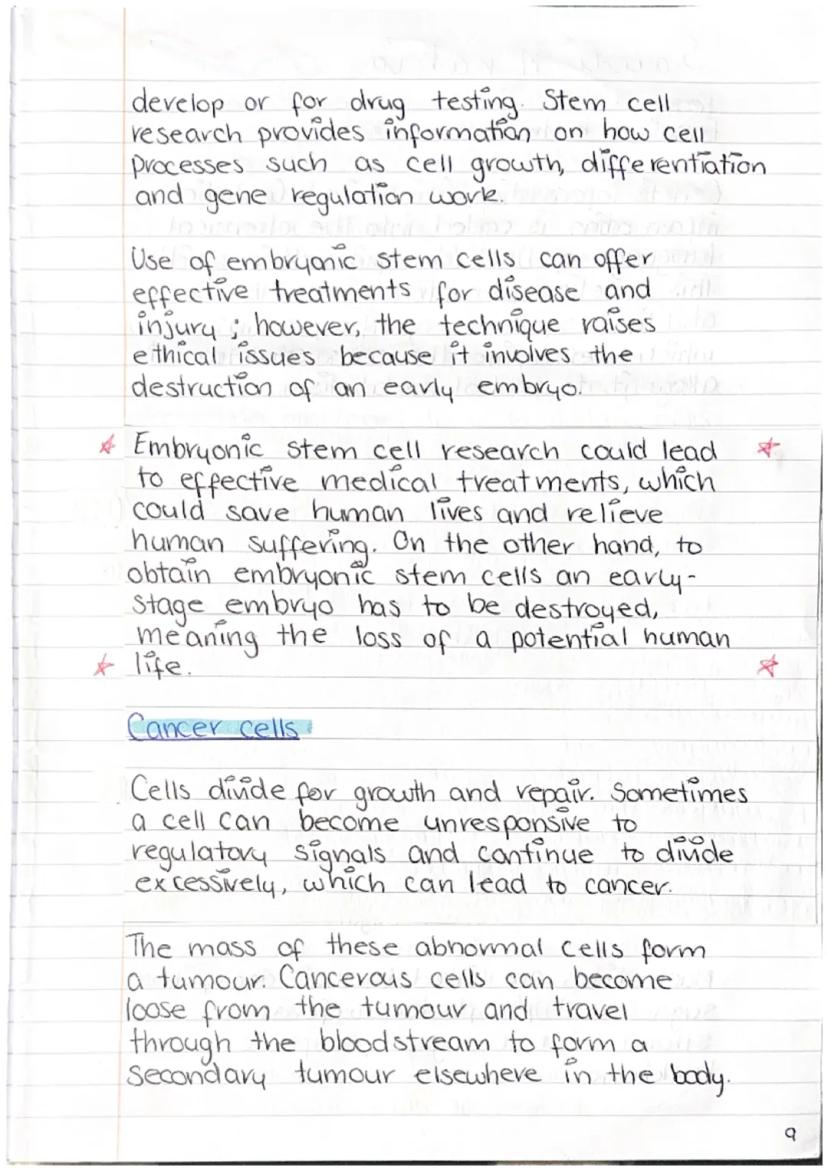 develop or for drug testing. Stem cell
research provides information on how cell
processes such as cell growth, differentiation
and gene regulation work.
Use of embryonic stem cells can offer
effective treatments for disease and
injury; however, the technique raises
ethical issues because it involves the
destruction of an early embryo.
Embryonic stem cell research could lead
to effective medical treatments, which
could save human lives and relieve
human suffering. On the other hand, to
obtain embryonic stem cells an early-
stage embryo has to be destroyed,
meaning the loss of a potential human
life.
Cancer cells
Cells divide for growth and repair. Sometimes
a cell can become unresponsive to
regulatory signals and continue to divide
excessively, which can lead to cancer.
The mass of these abnormal cells form
a tumour. Cancerous cells can become
loose from the tumour and travel
through the bloodstream to form a
secondary tumour elsewhere in the body.
9